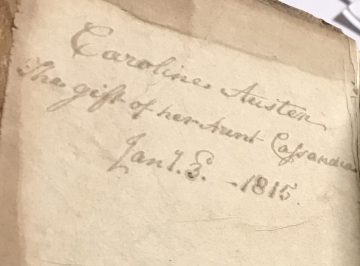 Caroline Austen
The gift of her Aunt Cassandra
Jan.y. 8. - 1815.